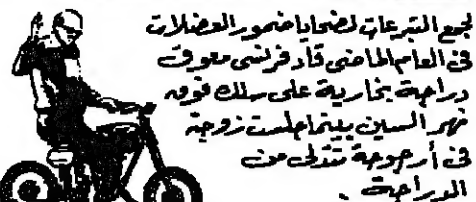 لجمع التبرعات لضحايا ضمور العضلات
فى العام الماضى قاد فرنسى معوق
دراجة بخارية على سلك فوق
نهر السين بينما جلست زوجته
فى أرجوحة تتدلى من
الدراجة .